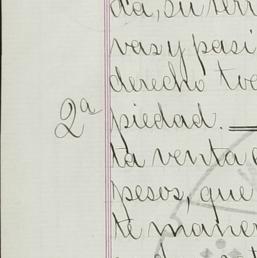 da, su terr
vas y pasi
derecho tod
2ª piedad. —
ta venta e
pesos, que
te maner